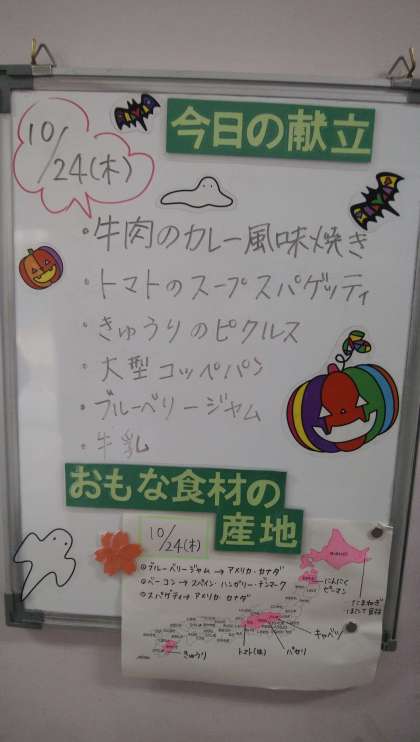 今日の献立
10/24(木)
・牛肉のカレー風味焼き
・トマトのスープスパゲッティ
・きゅうりのピクルス
・大型コッペパン
・ブルーベリージャム
・牛乳
おもな食材の
産地
10/24(木)
ブルーベリージャム → アメリカ・カナダ
ベーコン → スペイン・ハンガリー・デンマーク
スパゲティ → アメリカ カナダ
にんにく
ピーマン
たまねぎ
キャベツ
パセリ
トマト(缶)
きゅうり